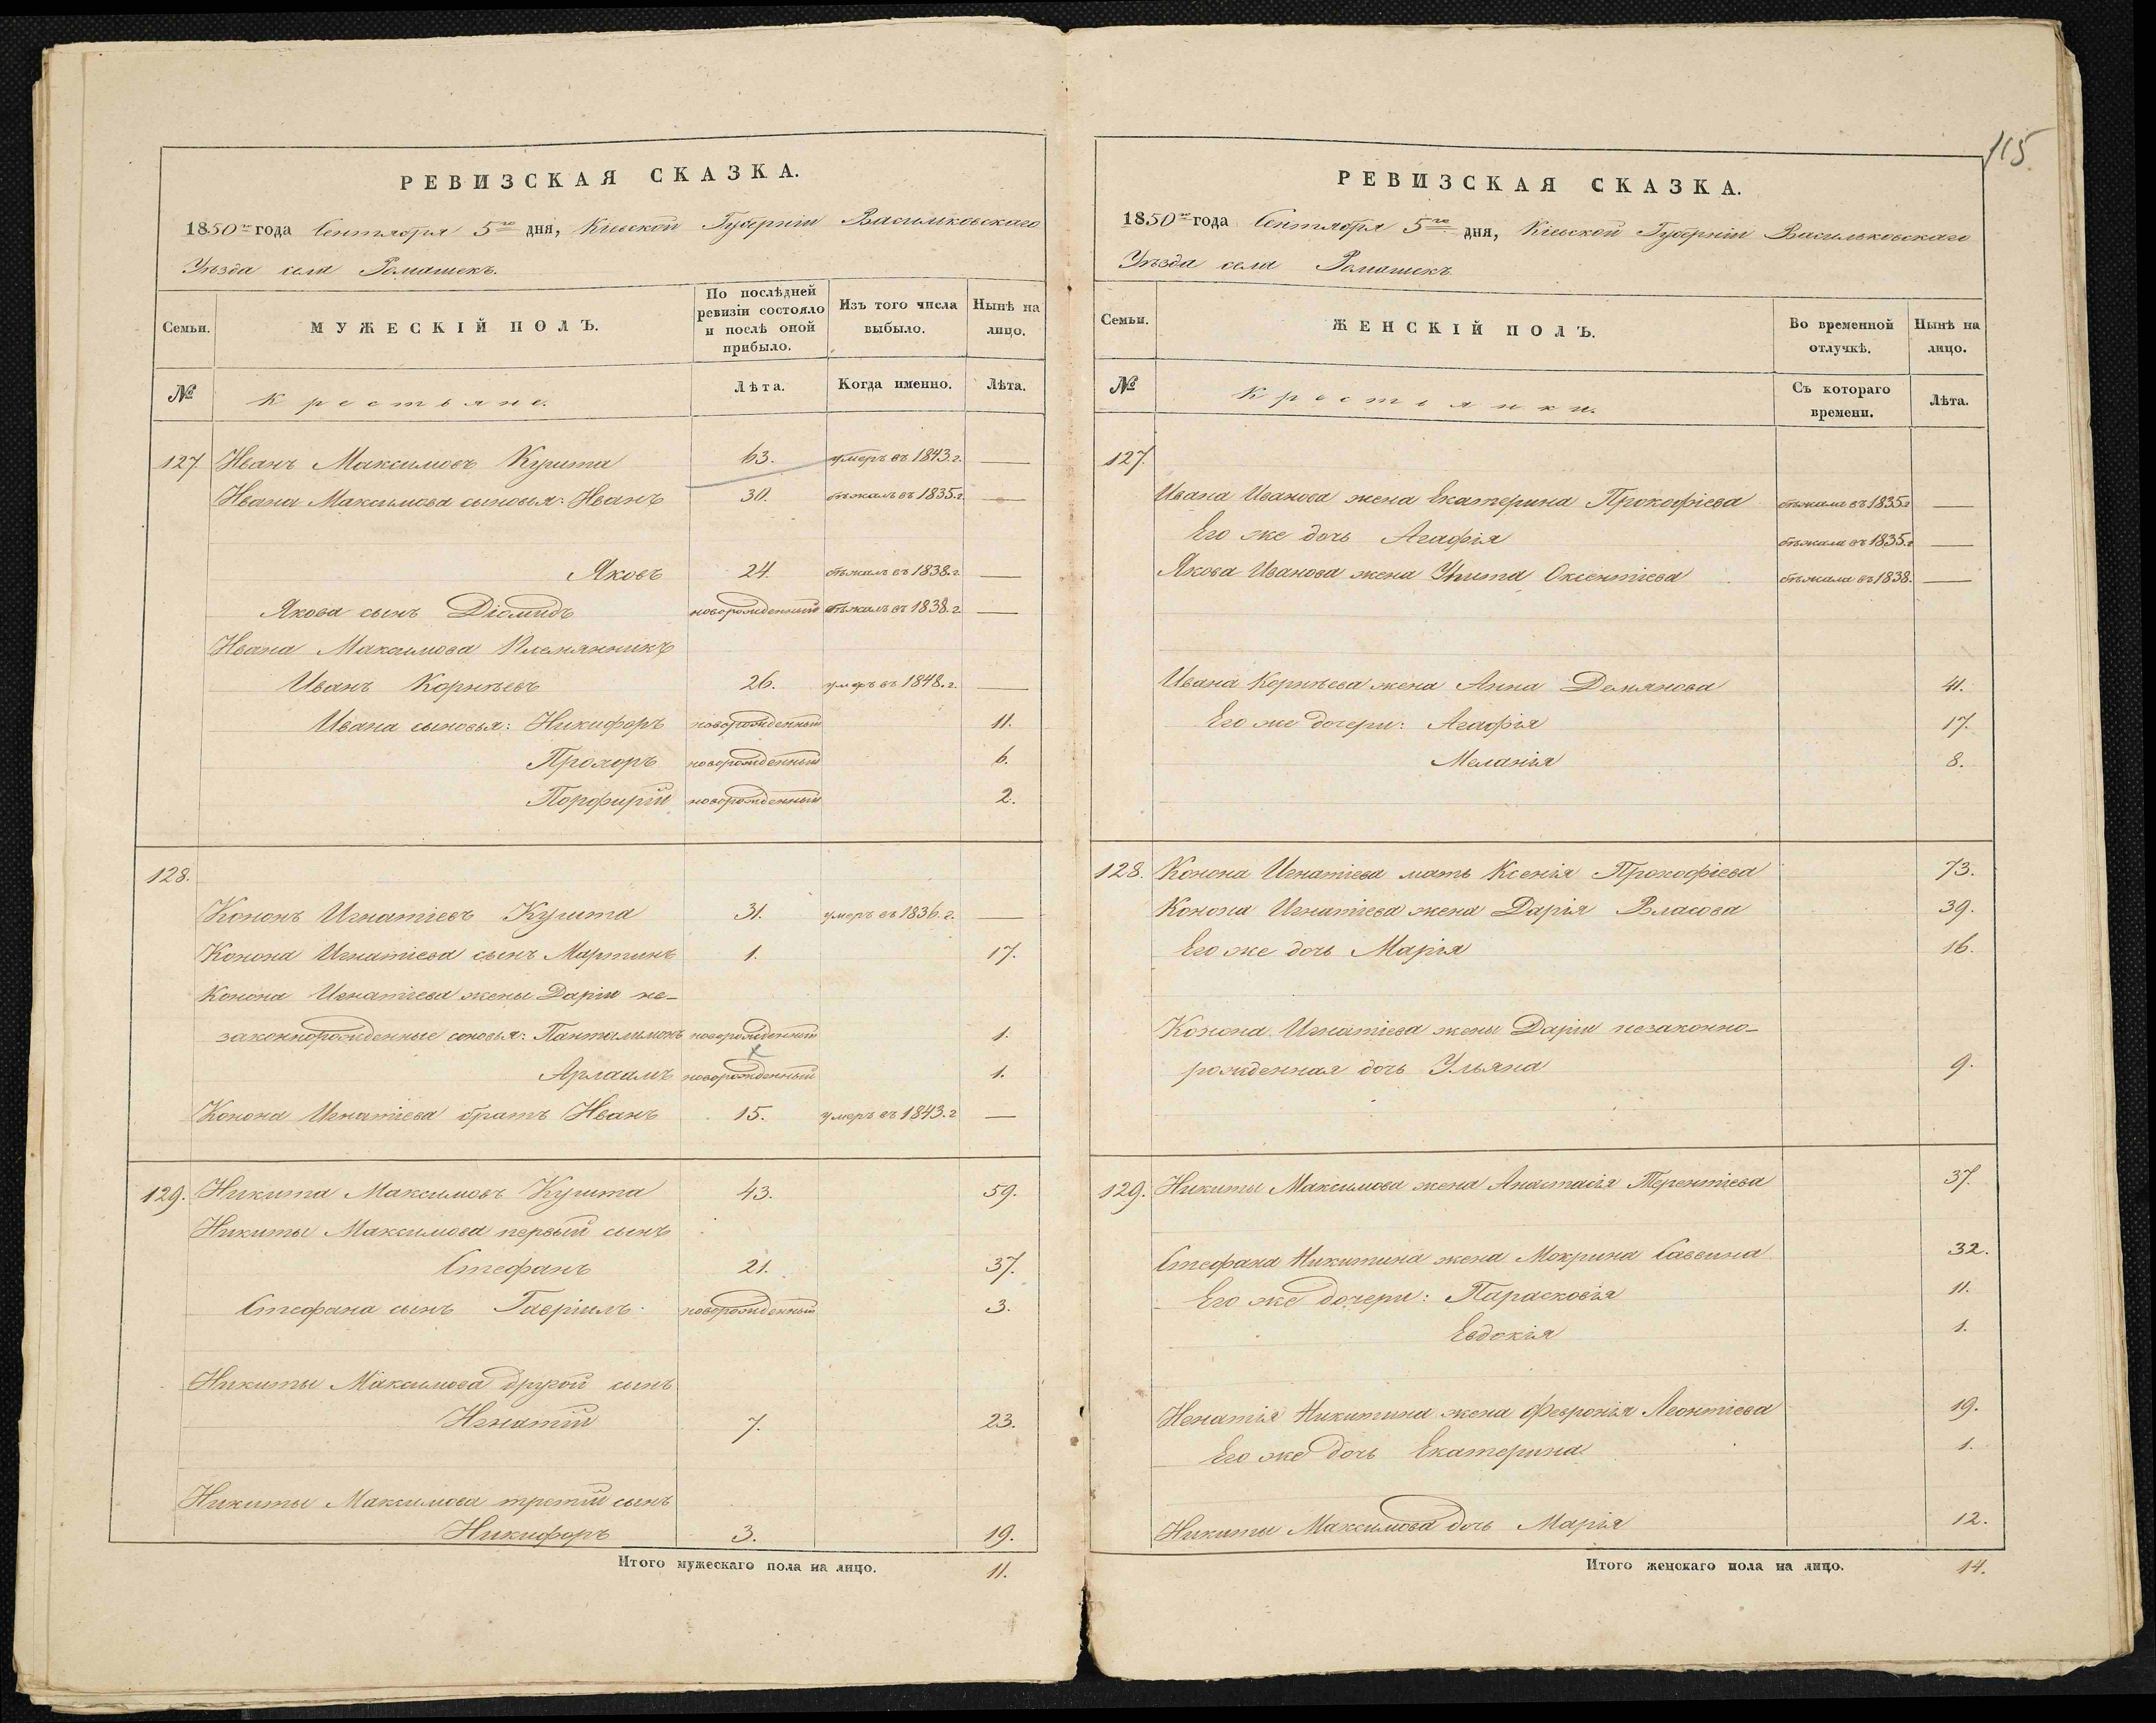 115.
РЕВИЗСКАЯ СКАЗКА.
1850го года Сентября 5го дня, Кіевской Губерніи Васильковскаго
Уѣзда села Ромашекъ.
Семьи.
МУЖЕСКІЙ ПОЛЪ.
По послѣдней ревизіи состояло и послѣ оной прибыло.
Изъ того числа выбыло.
Нынѣ на лицо.
№
Крестьяне.
Лѣта.
Когда именно.
Лѣта.
127 Иванъ Максимовъ Кушта 63. умеръ въ 1843.г. —
Ивана Максимова сыновья: Иванъ 30. бѣжалъ въ 1835.г —
Яковъ 24. бѣжалъ въ 1838.г. —
Якова сынъ Діомидъ новорожденный бѣжалъ въ 1838.г —
Ивана Максимова Племянникъ
Иванъ Корнѣевъ 26. умеръ въ 1848.г. —
Ивана сыновья: Никифоръ новорожденный 11.
Прохоръ новорожденный 6.
Порфирій новорожденный 2.
128.
Кононъ Игнатіевъ Кушта 31. умеръ въ 1836.г. —
Конона Игнатіева сынъ Мартинъ 1. 17.
Конона Игнатіева жены Даріи не-
законнорожденные соновья: Пантилимонъ новорожденный 1.
Арлаамъ новорожденный 1.
Конона Игнатіева братъ Иванъ 15. умеръ въ 1843.г —
129. Никита Максимовъ Кушта 43. 59.
Никиты Максимова первый сынъ
Стефанъ 21. 37.
Стефана сынъ Гавріилъ новорожденный 3.
Никиты Максимова другой сынъ
Игнатій 7. 23.
Никиты Максимова третій сынъ
Никифоръ 3. 19.
Итого мужескаго пола на лицо. 11.
РЕВИЗСКАЯ СКАЗКА.
1850го года Сентября 5го дня, Кіевской Губерніи Васильковскаго
Уѣзда села Ромашекъ
Семьи.
ЖЕНСКІЙ ПОЛЪ.
Во временной отлучкѣ.
Нынѣ на лицо.
№
Крестьянки.
Съ котораго времени.
Лѣта.
127.
Ивана Иванова жена Екатерина Прокофіева бѣжала въ 1835г —
Его же дочь Агафія бѣжала въ 1835.г —
Якова Иванова жена Улита Оксентіева бѣжала въ 1838. —
Ивана Корнѣева жена Анна Демянова 41.
Его же дочери: Агафія 17.
Меланія 8.
128. Конона Игнатіева мать Ксенія Прокофіева 73.
Конона Игнатіева жена Дарія Власова 39.
Его же дочь Марія 16.
Конона Игнатіева жены Даріи незаконно-
рожденная дочь Ульяна 9.
129. Никиты Максимова жена Анастасія Терентіева 37.
Стефана Никитина жена Мокрина Саввина 32.
Его же дочери: Парасковія 11.
Евдокія 1.
Игнатія Никитина жена Февронія Леонтіева 19.
Его же дочь Екатерина 1.
Никиты Максимова дочь Марія 12.
Итого женскаго пола на лицо. 14.